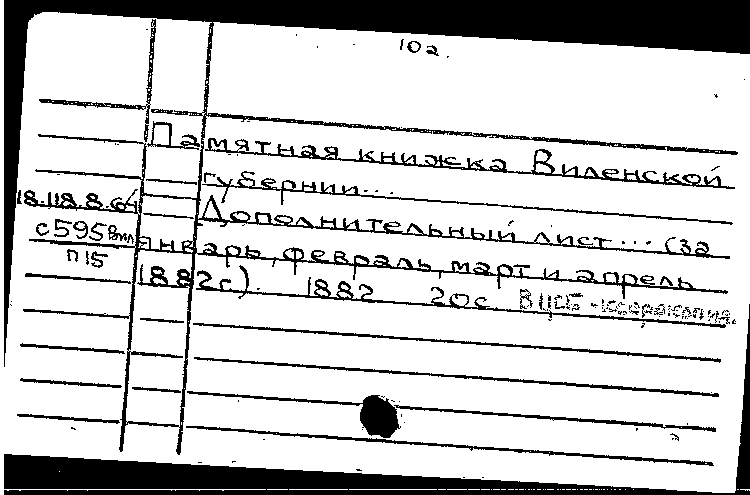 10а.
Памятная книжка Виленской
губернии...
18.118.8.64 Дополнительный лист... (за
с595 январь, февраль, март и апрель
п15 1882г.). 1882 20с ВЦСБ - ксерокопия.